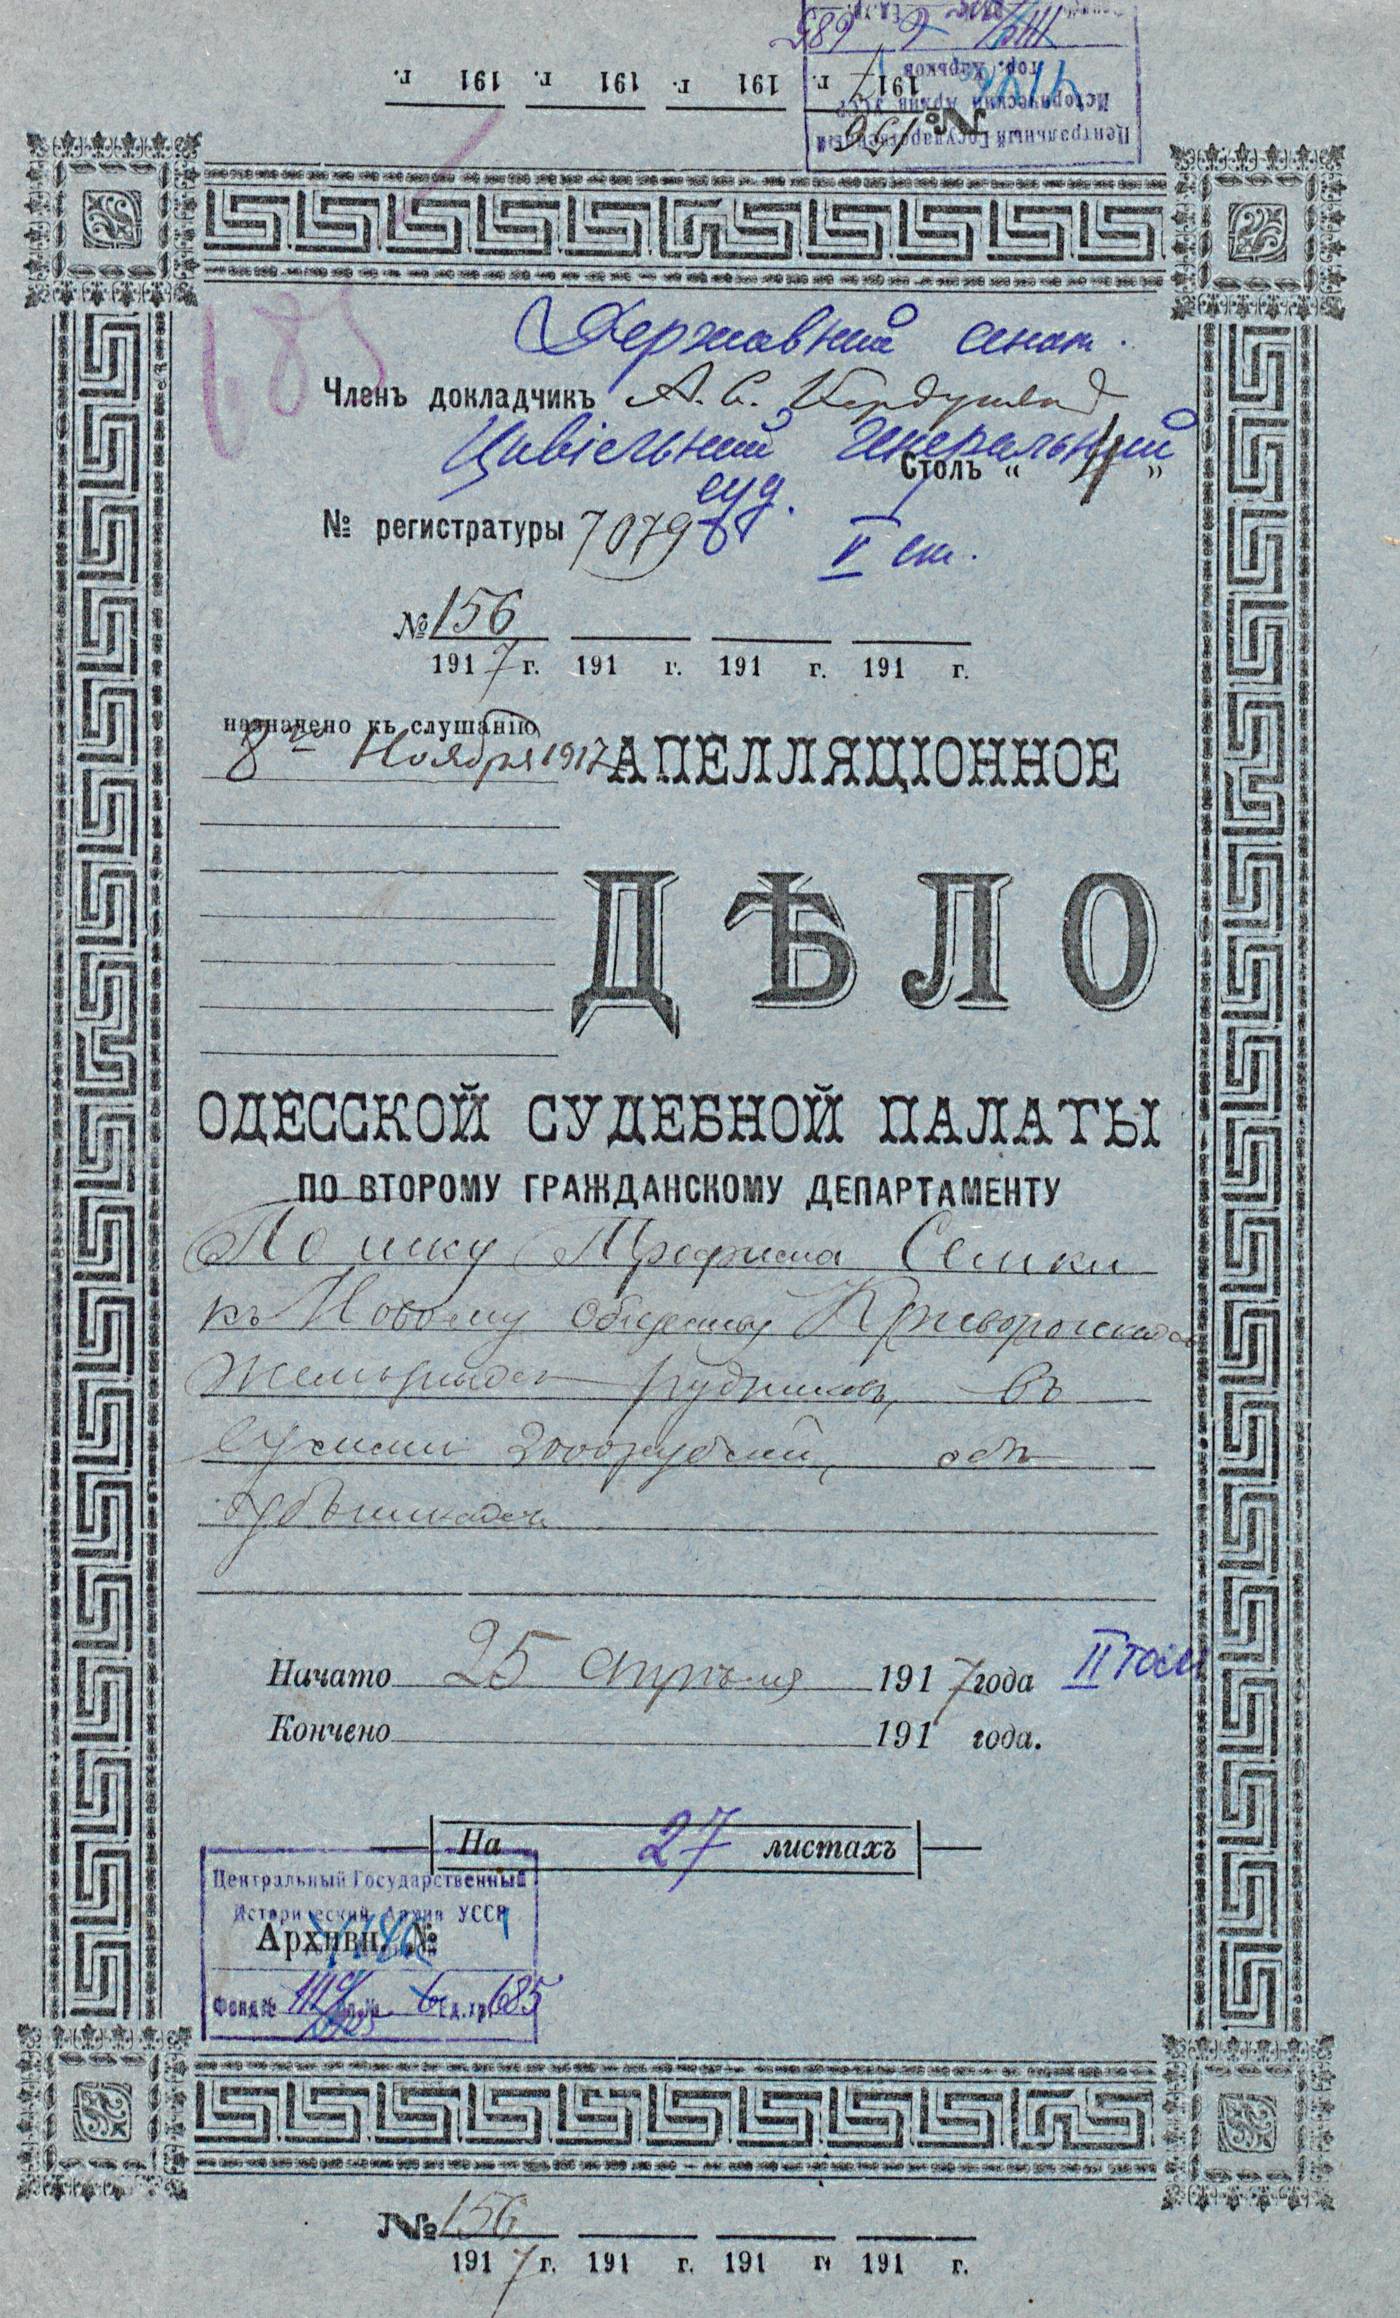 191 г. 191 г. 191 г. 1917 г.
№ 156
Центральный Государственный
Исторический Архив УССР
гор. Харьков
685
Державний сенат.
Членъ докладчикъ А. С.
Цивільний Генеральний
суд.
Столъ „ 4 “
№ регистратуры 7079
V ст.
№ 156
1917 г. 191 г. 191 г. 191 г.
назначено къ слушанію
8го Ноября 1917
АПЕЛЛЯЦІОННОЕ
ДѢЛО
ОДЕССКОЙ СУДЕБНОЙ ПАЛАТЫ
ПО ВТОРОМУ ГРАЖДАНСКОМУ ДЕПАРТАМЕНТУ
По иску Трофима Семки
къ Новому Обществу Криворожскихъ
Желѣзныхъ рудниковъ, въ
суммѣ 3000 рублей, объ
убыткахъ
Начато 25 апрѣля 1917 года
II том
Кончено 191 года.
На 27 листахъ
Центральный Государственный
Исторический Архив УССР
Архивн. №
Фонд № оп. № 6 Ед.хр. 685
№ 156
1917 г. 191 г. 191 г. 191 г.